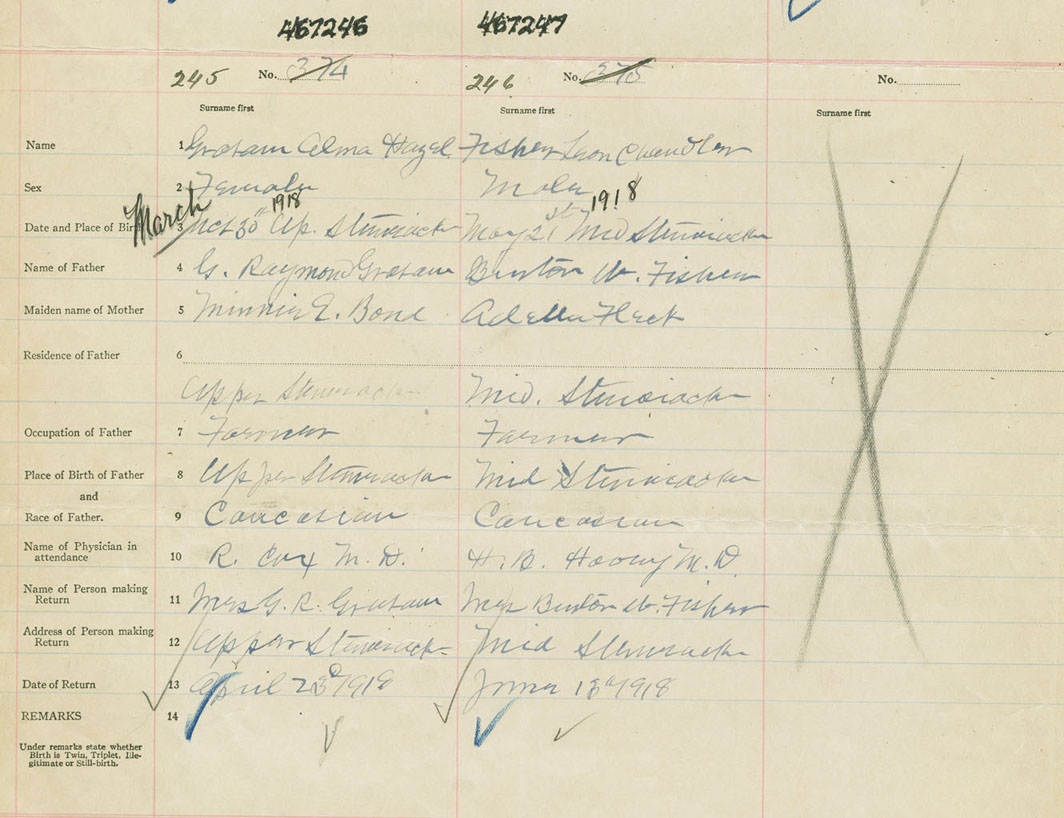 467246 467247
245 No. 374 246 No. 375 No.
Surname first Surname first Surname first
Name 1 Graham Alma Hazel Fisher Leon Chandler
Sex 2 Female Male
1918 1918
March
Date and Place of Birth 3 Oct 30th Up. Stewiacke May 21st Mid Stewiacke
Name of Father 4 G. Raymond Graham Burton W. Fisher
Maiden name of Mother 5 Minnie E. Bond Adella Fleck
Residence of Father 6
Upper Stewiacke Mid. Stewiacke
Occupation of Father 7 Farmer Farmer
Place of Birth of Father 8 Upper Stewiacke Mid Stewiacke
and
Race of Father. 9 Caucasian Caucasian
Name of Physician in
attendance 10 R. Cox M. D. H. B. M. D.
Name of Person making
Return 11 Mrs G. R. Graham Mrs Burton W. Fisher
Address of Person making
Return 12 Upper Stewiacke Mid Stewiacke
Date of Return 13 April 23d 1918 June 13th 1918
REMARKS 14
Under remarks state whether
Birth is Twin, Triplet, Ille-
gitimate or Still-birth.